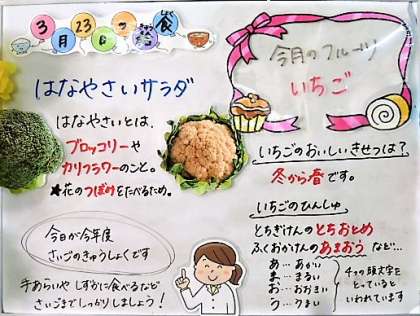 3月23日の給食
はなやさいサラダ
はなやさいとは、
ブロッコリーや
カリフラワーのこと。
★花のつぼみをたべるため。
今日が今年度
さいごのきゅうしょくです
手あらいや しずかに食べるなど
さいごまでしっかりしましょう！
今月のフルーツ
いちご
いちごのおいしいきせつは？
冬から春です。
いちごのひんしゅ
とちぎけんのとちおとめ
ふくおかけんのあまおう など…
あ…あかい
ま…まるい
お…おおきい
う…うまい
4つの頭文字を
とっていると
いわれています